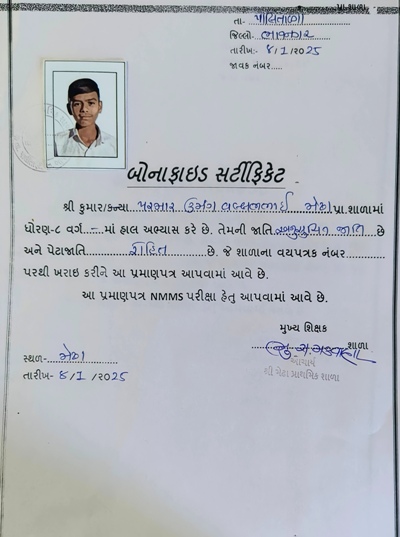 તા- પાલિતાણા
જિલ્લો. ભાવનગર
તારીખ:- ૪/1/૨૦25
જાવક નંબર.....
બોનાફાઇડ સર્ટીફિકેટ
શ્રી કુમાર/કન્યા...પરમાર ઉમંગ વલ્લભભાઈ મેઢા પ્રા.શાળામાં
ધોરણ-૮ વર્ગ. – માં હાલ અભ્યાસ કરે છે. તેમની જાતિ અનુસુચિત જાતિ છે
અને પેટાજાતિ............રોહિત............છે. જે શાળાના વયપત્રક નંબર..............
પરથી ખરાઇ કરીને આ પ્રમાણપત્ર આપવામાં આવે છે.
આ પ્રમાણપત્ર NMMS પરીક્ષા હેતુ આપવામાં આવે છે.
મુખ્ય શિક્ષક
શાળા
આચાર્ય
શ્રી મેઢા પ્રાથમિક શાળા
સ્થળ- મેઢા
તારીખ- ૪/1/૨૦25